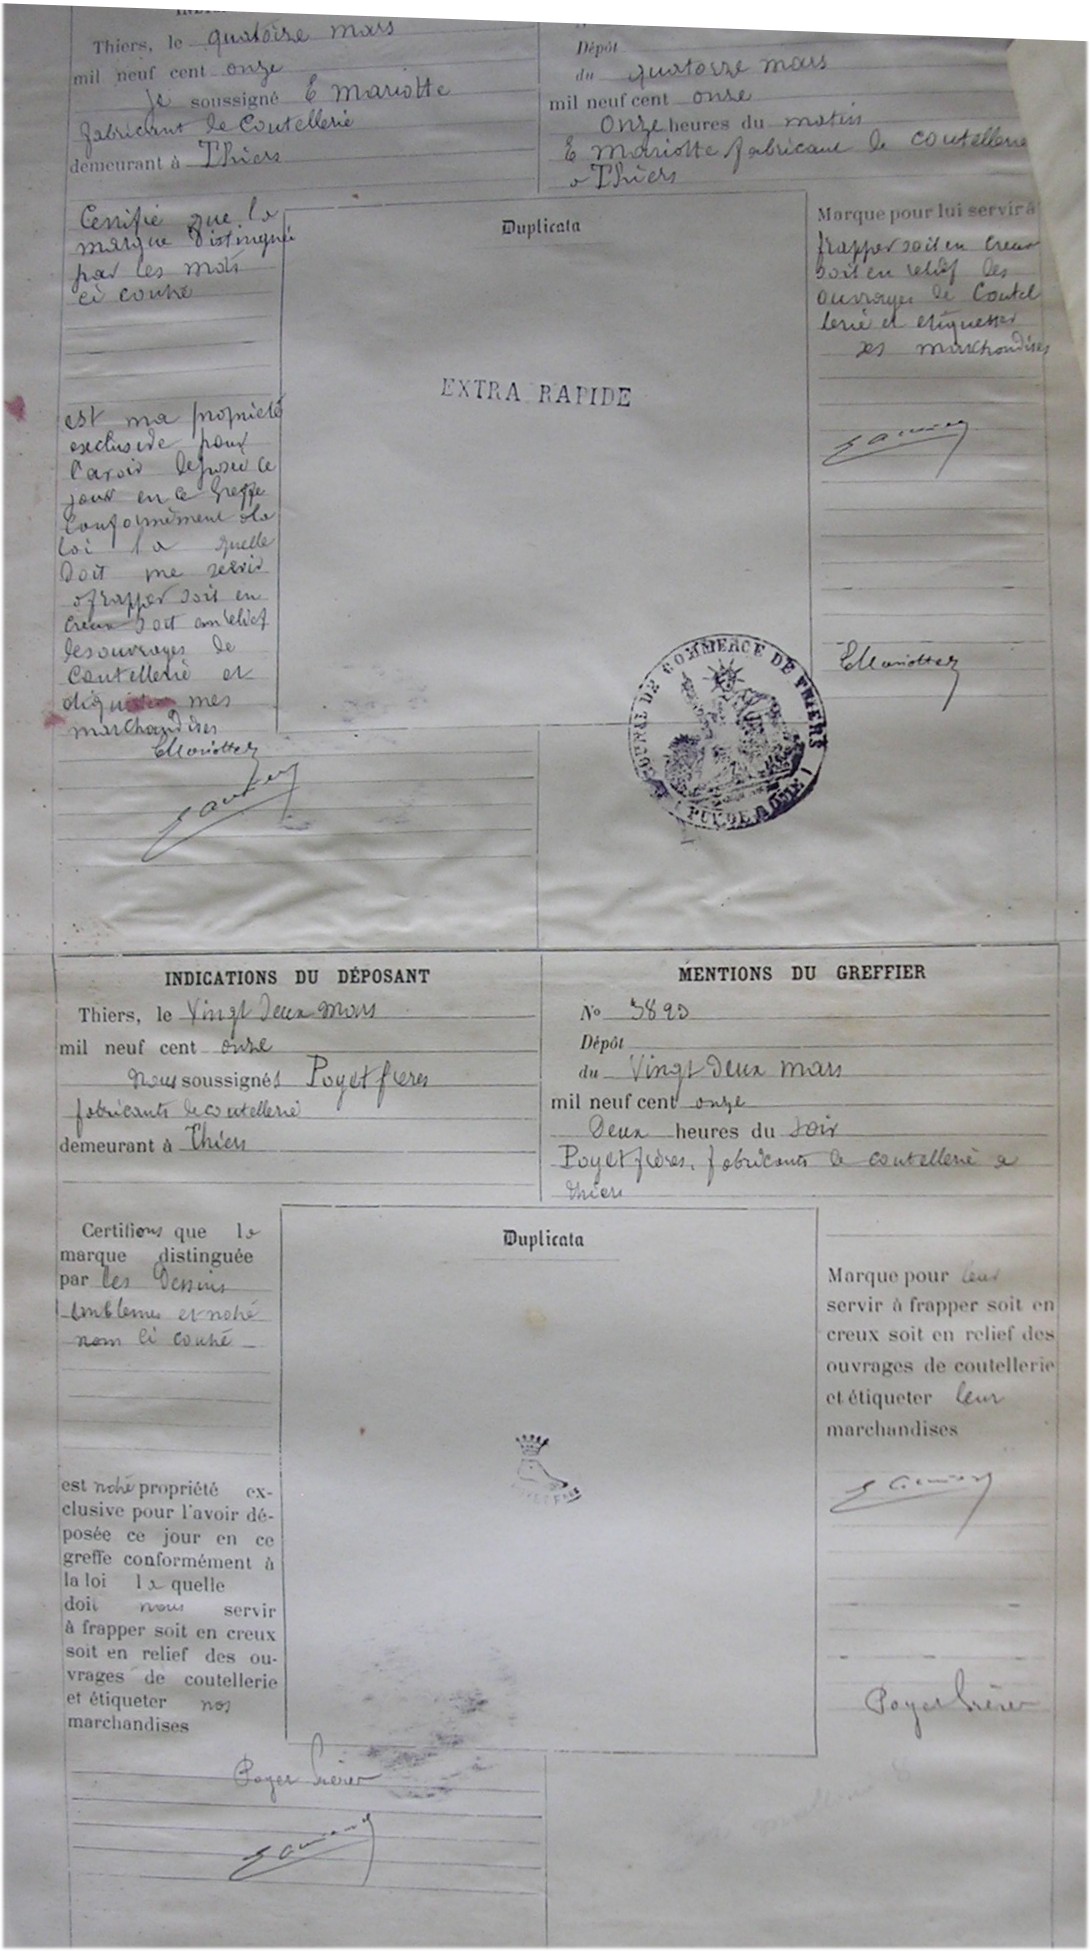 Thiers, le quatorze mars
mil neuf cent onze
je soussigné E Mariotte
fabricant de coutellerie
demeurant à Thiers
Dépôt
du quatorze mars
mil neuf cent onze
onze heures du matin
E Mariotte fabricant de coutellerie
a Thiers
Certifie que la
marque distinguée
par les mots
ci contre
est ma propriété
exclusive pour
l'avoir déposée ce
jour en ce Greffe
conformément a la
loi la quelle
doit me servir
a frapper soit en
creux soit en relief
des ouvrages de
coutellerie et
mes
marchandises
EMariotte
Duplicata
EXTRA RAPIDE
Marque pour lui servir à
frapper soit en creux
soit en relief des
ouvrages de Coutel
lerie et etiquetter
ses marchandises
EMariotte
TRIBUNAL DE COMMERCE DE THIERS
PUY DE DOME
INDICATIONS DU DÉPOSANT
Thiers, le Vingt deux mars
mil neuf cent onze
nous soussignés Poyet frères
fabricants de coutellerie
demeurant à Thiers
MENTIONS DU GREFFIER
No
Dépôt
du Vingt deux mars
mil neuf cent onze
Deux heures du soir
Poyet frères, fabricants de coutellerie a
Thiers
Certifions que la
marque distinguée
par les Dessins
emblemes et notre
nom ci contre
est notre propriété ex-
clusive pour l'avoir dé-
posée ce jour en ce
greffe conformément à
la loi la quelle
doit nous servir
à frapper soit en creux
soit en relief des ou-
vrages de coutellerie
et étiqueter nos
marchandises
Poyet frères
Duplicata
Marque pour leur
servir à frapper soit en
creux soit en relief des
ouvrages de coutellerie
et étiqueter leur
marchandises
Poyet frères